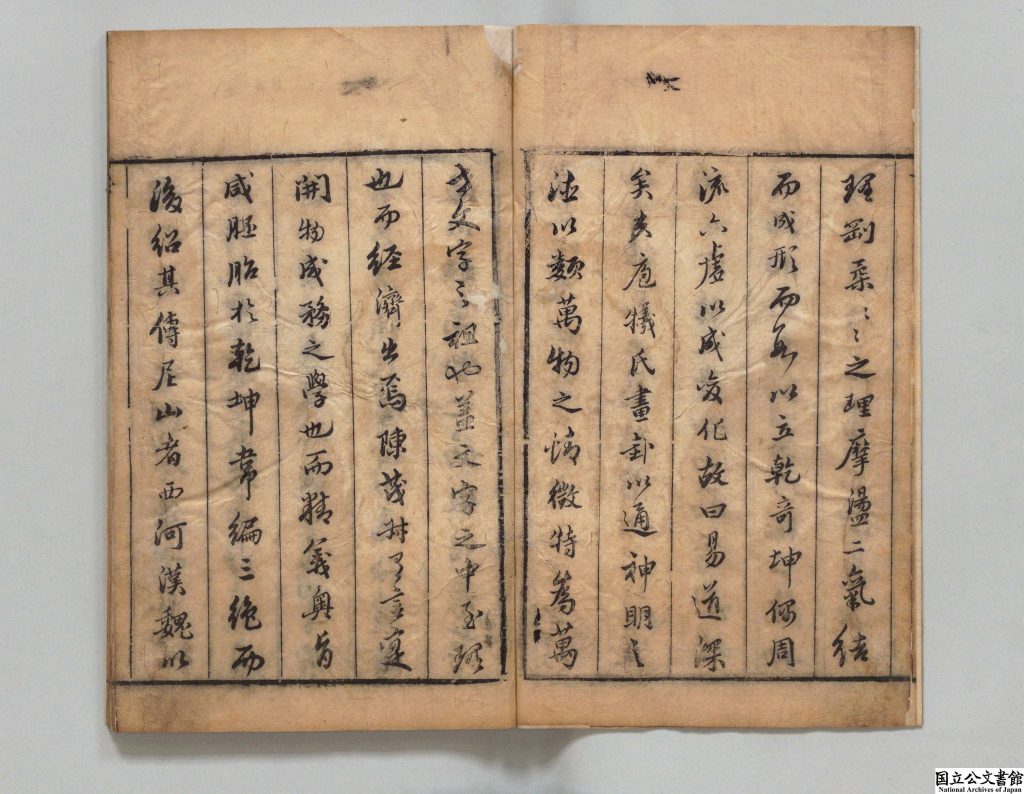 理剛柔〻〻之理摩盪二氣結
而成形而易以立乾奇坤偶周
流六虛以成變化故曰易道深
矣夫庖犧氏畫卦以通神明之
德以類萬物之情微特為萬
世文字之祖也蓋文字之中至理
也而經濟出焉陳茂州有言寔
開物成務之學也而精義奧旨
咸胚胎於乾坤韋編三絶而
後紹其傳尼山者西河漢魏以
国立公文書館
National Archives of Japan